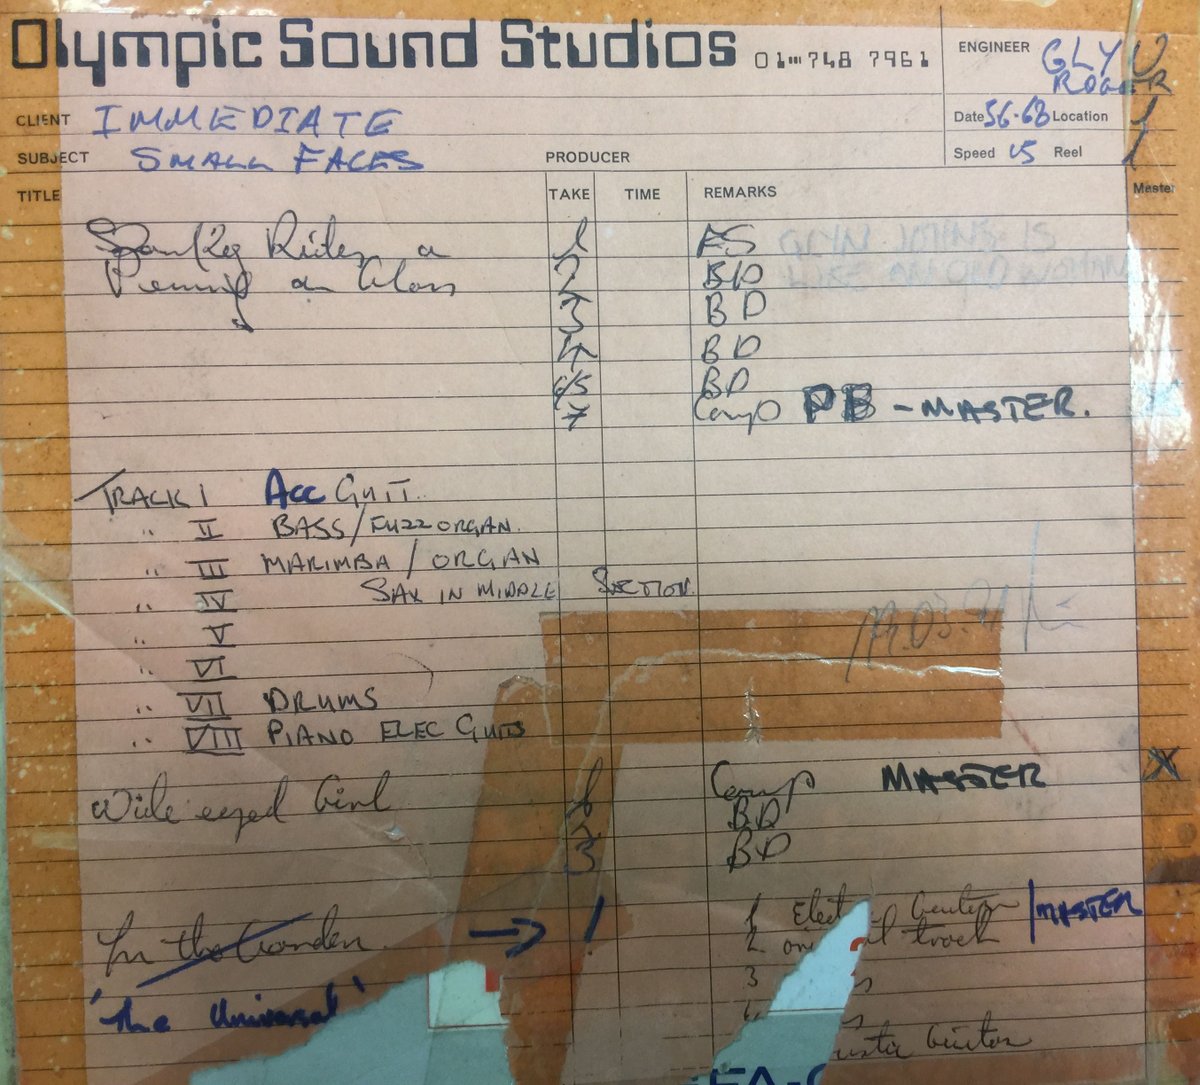 Olympic Sound Studios 01-748 7961
ENGINEER GLYN
ROGER
CLIENT IMMEDIATE
Date Location 1
SUBJECT SMALL FACES PRODUCER
Speed 15 Reel 1
TITLE TAKE TIME REMARKS Master
Rides a 1 FS
GLYN JOHNS IS
Penny 2 BD
LIKE AN OLD WOMAN
3 BD
4 BD
6/5 BD
7 Comp PB - MASTER.
TRACK I Acc GUIT.
" II BASS/FUZZ ORGAN.
" III MARIMBA / ORGAN
" IV SAX IN MIDDLE SECTION.
" V
" VI
" VII DRUMS
" VIII PIANO ELEC GUITS
Wide eyed Girl 1 Comp MASTER X
2 BD
3 BD
1 /MASTER
In the Garden. → 1
2 track
3
'The Universal'